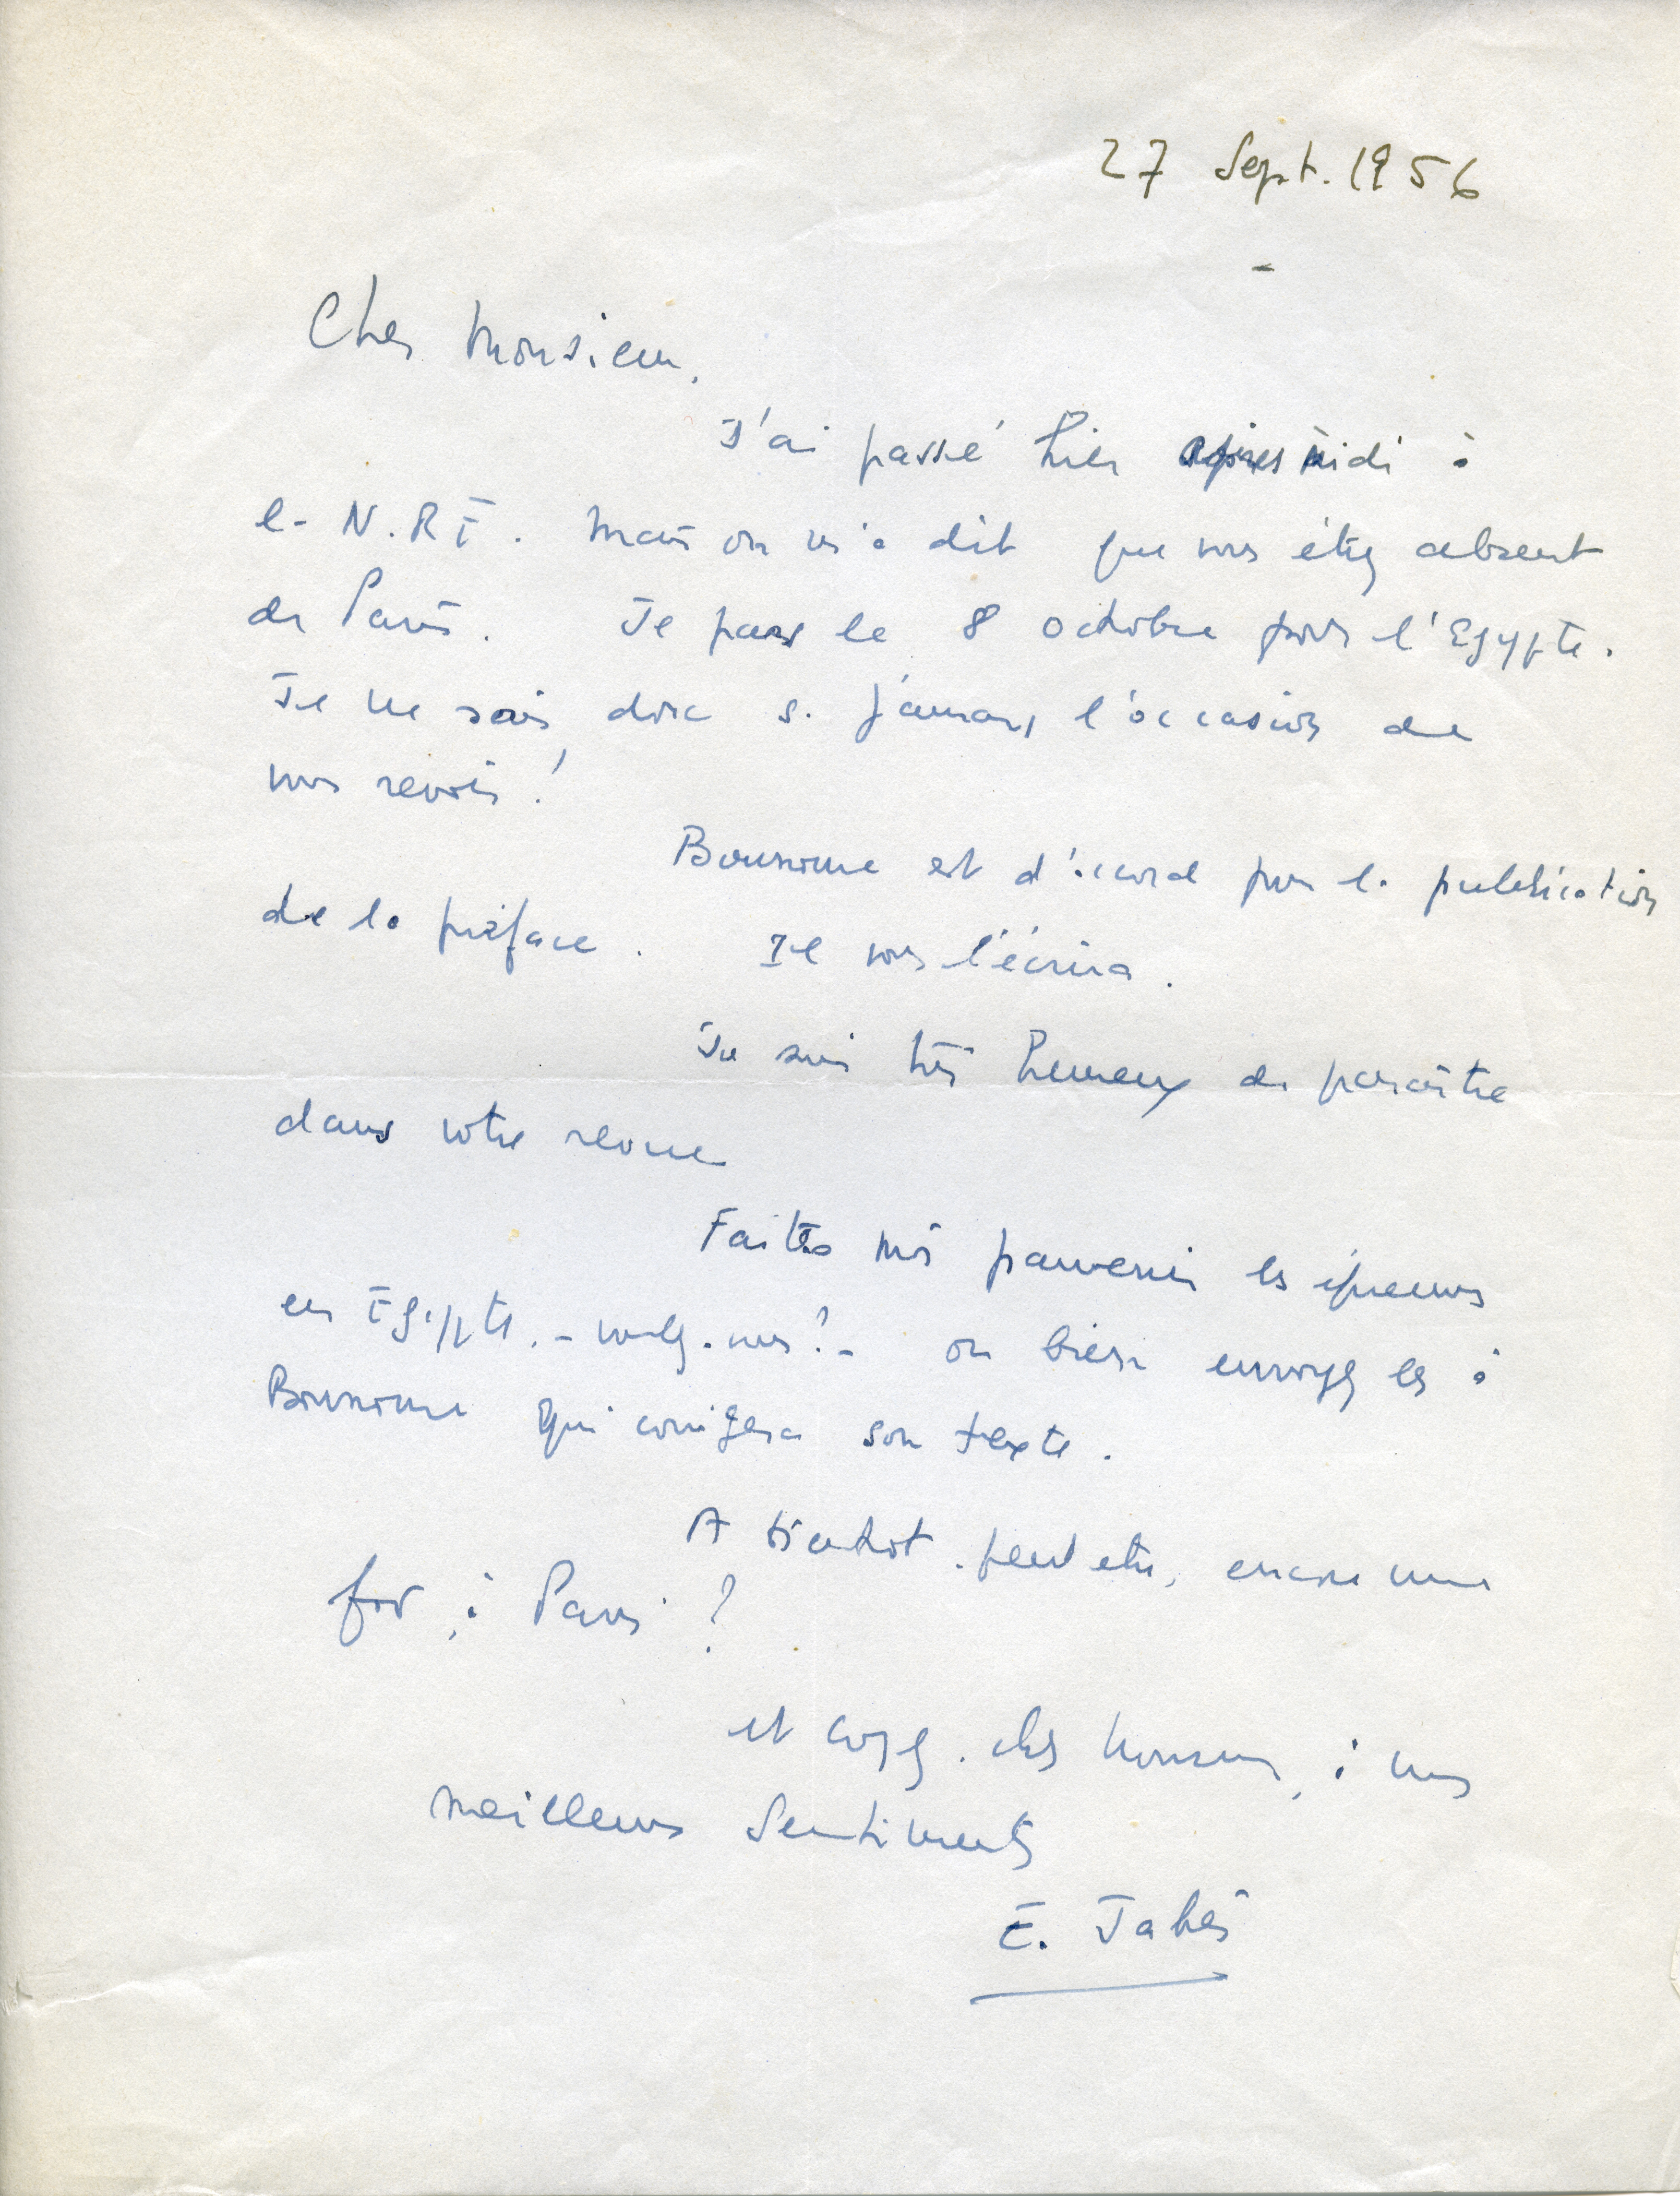 27 Sept. 1956
-
Cher Monsieur,
J'ai passé hier après midi à
la N.R.F. Mais on m'a dit que vous étiez absent
de Paris. Je pars le 8 octobre pour l'Egypte.
Je ne sais donc si j'aurais l'occasion de
vous revoir !
Bounoure est d'accord pour la publication
de la préface. Il vous l'écrira.
Je suis très heureux de paraître
dans votre revue
Faites moi parvenir les épreuves
en Egypte. - voulez-vous ? - ou bien envoyez les à
Bounoure qui corrigera son texte.
A bientôt. peut etre, encore une
fois, à Paris ?
et croyez. cher Monsieur, à mes
meilleurs sentiments
E. Jabès